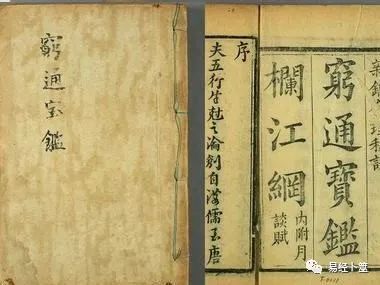 窮通宝鑑
窮通寶鑑
欄江網
內附月談賦
序
夫五行生尅之論創自漢儒至唐
易经卜筮